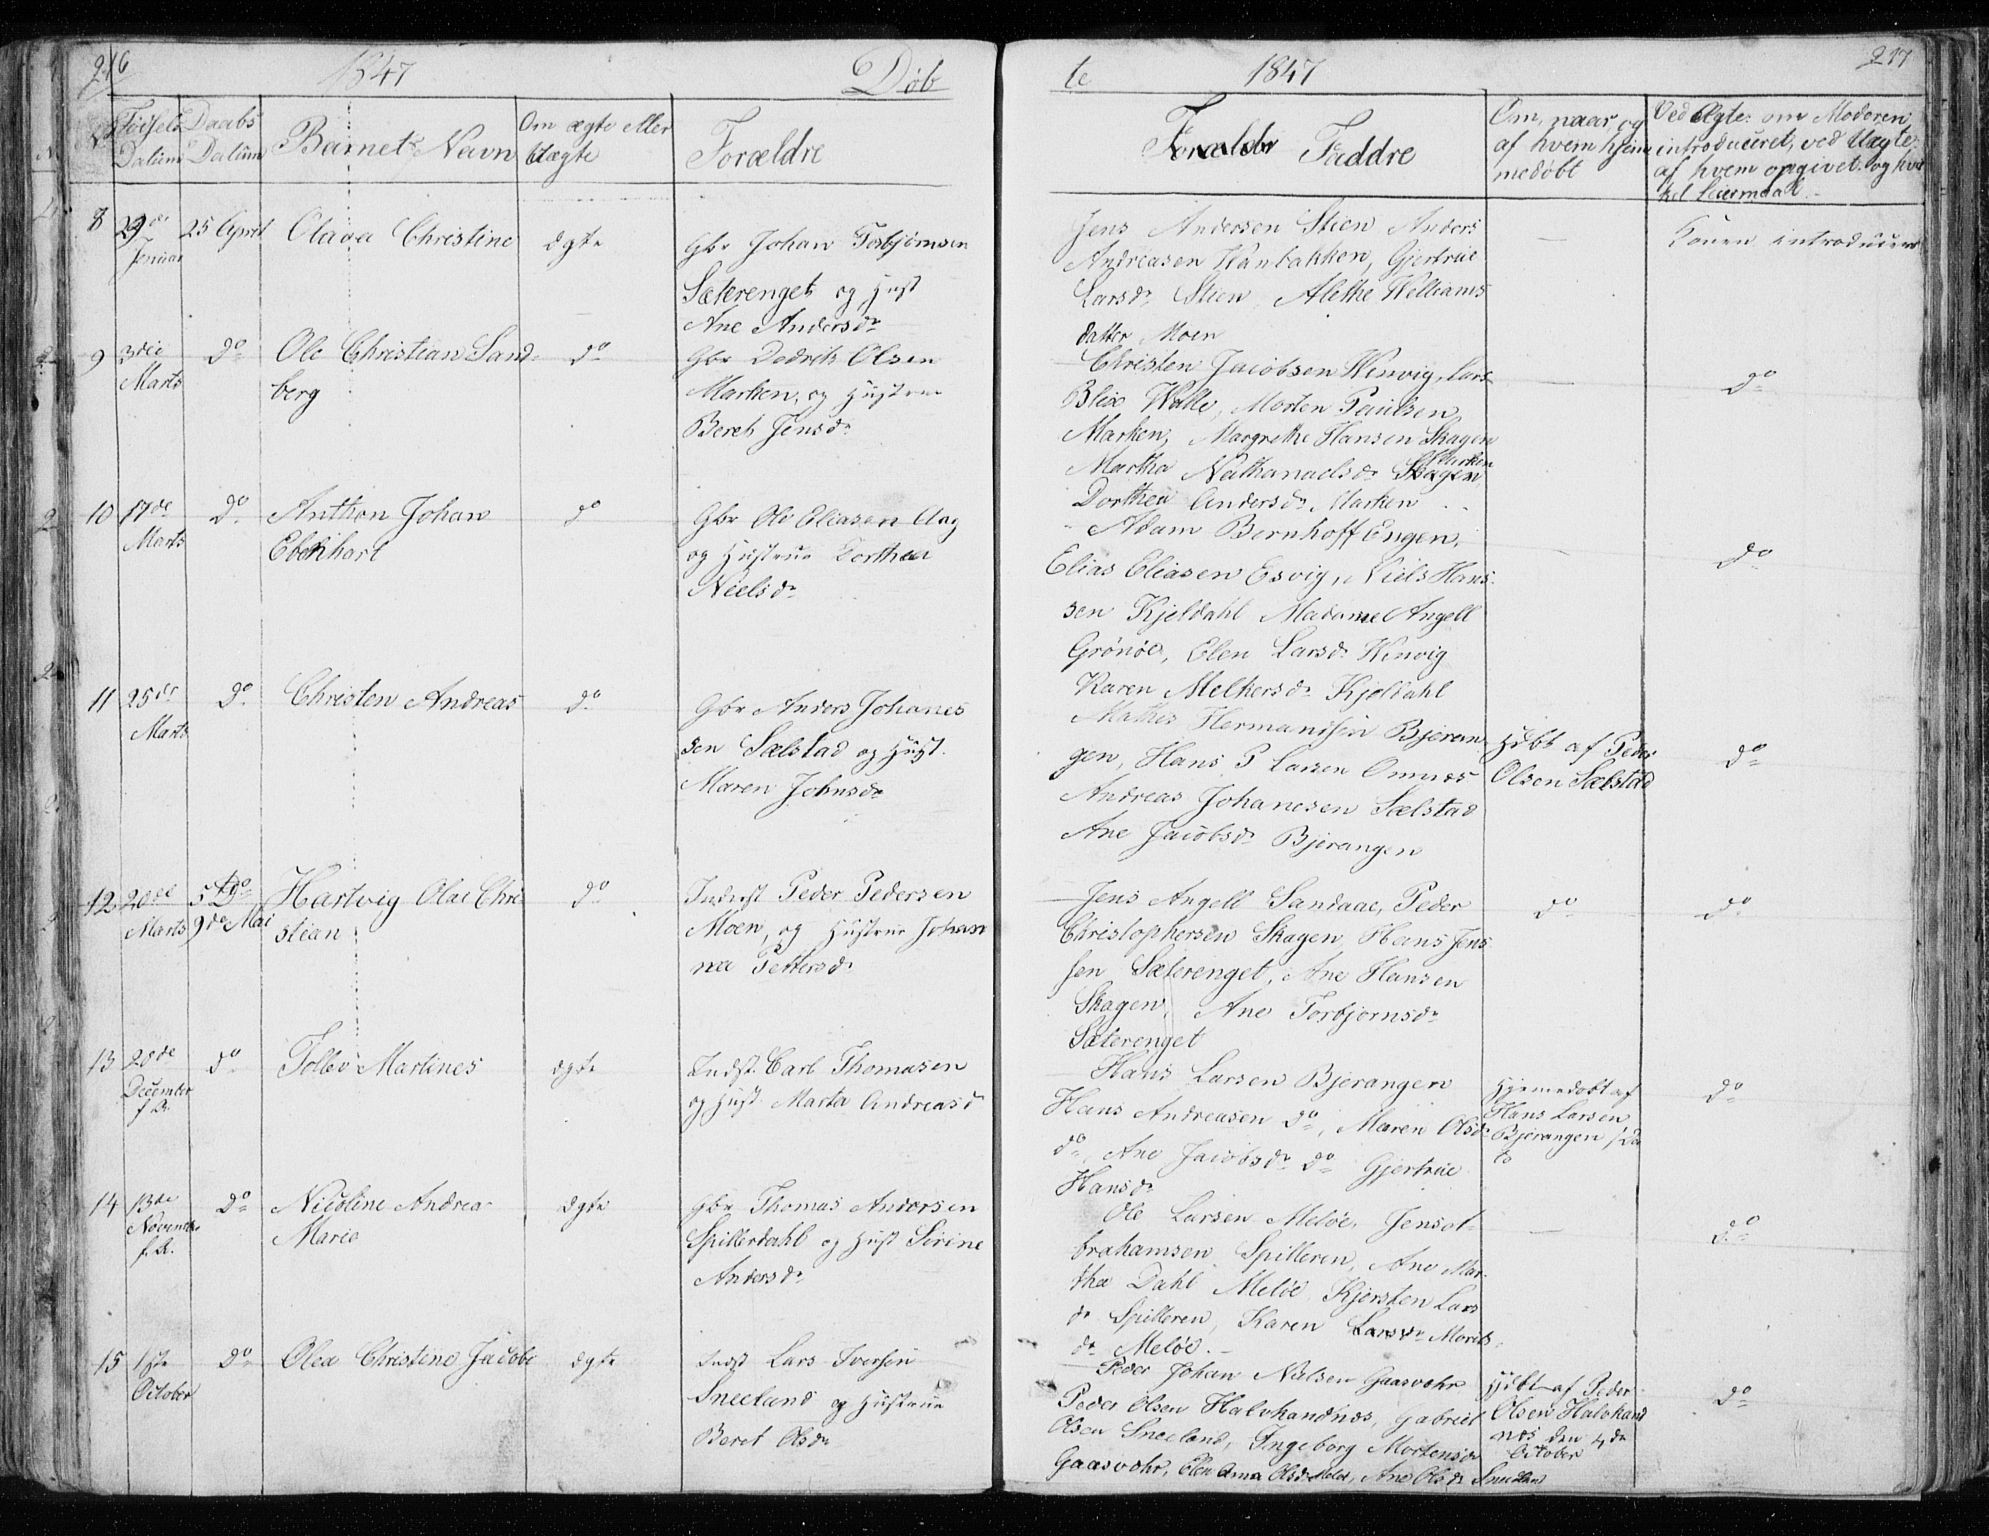 216
1847
Døb
Fødsels
Datum
Daabs
Datum
Barnets Navn
Om ægte eller
Uægte
Forældre
8
29de
Januar
25 April
Olava Christine
ægte
Gbr Johan Torbjørnsen
Sæterenget og Hust
Ane Andersdr
9
3die
Marts
do
Ole Christian Sand-
berg
do
Gbr Dedrik Olsen
Marken, og Hustrue
Beret Jensdr
10
17de
Marts
do
Anthon Johan
do
Gbr Ole Eliasen Aag
og Hustrue Dorthea
Nielsdr
11
25de
Marts
do
Christen Andreas
do
Gbr Anders Johanes
sen Sælstad og Hust.
Maren Johnsdr
12
20de
Marts
9de Mai
Hartvig Olai Chri-
stian
do
Inderst Peder Pedersen
Moen, og Hustrue Johan
na Pettersdr
13
20de
December
f. A.
do
Tollev Martines
ægte
Indst. Carl Thomasen
og Hust. Marta Andreasd
14
13de
November
f. A.
do
Nicoline Andrea
Marie
ægte
Gbr Thomas Andersen
Spillerdahl og Hust Sirine
Andersdr
15
1ste
October
do
Olea Christine Jacobe
ægte
Indst Lars Iversen
Sneeland og Hustrue
Beret Olsdr
te
1847
217
Forældre Faddre
Om, naar og
af hvem hjem
medøbt
Ved Ægte: om Moderen
introduceret, ved Uægte:
af hvem opgivet og hvil
ket Leiermaal.
Jens Andersen Stien Anders
Andreasen Hanbakken, Gjertrue
Larsdr Stien Alethe Williams
datter Moen
Konen introduceret
Christen Jacobsen Kinvig, Lars
Blix Walle, Morten Paulsen
Marken, Margrethe Hansen Skagen
Martha Nathanaelsdr Skagen Marken
Dorthea Andersdr Marken
do
Adam Bernhoff Engen,
Elias Eliasen Esvig, Niels Hans
sen Kjeldahl Madame Angell
Grønøe, Elen Larsdr Kinvig
Karen Melkersdr Kjeldahl
do
Mathis Hermandsen Bjeran-
gen, Hans P Larsen Ommes
Andreas Johanesen Sælstad
Ane Jacobsdr Bjerangen
Hdbt af Peder
Olsen Sælstad
do
Jens Angell Sandaae, Peder
Christophersen Skagen, Hans Jens
sen Sæterenget, Ane Hansen
Skagen, Ane Torbjørnsdr
Sæterenget
do
do
Hans Larsen Bjerangen
Hans Andreasen do, Maren Olsdr
do, Ane Jacobsdr do Gjertrue
Hansdr
Hjemedøbt af
Hans Larsen
Bjerangen
do
Ole Larsen Meløe, Jens A-
brahamsen Spilleren, Ane Mar-
tha Dahl Meløe Kjersten Lars
dr Spilleren, Karen Larsdr Morits
dr Meløe.
do
Peder Johan Nilsen Gaasvohr
Peder Olsen Halvhandnæs, Gabriel
Olsen Sneeland, Ingeborg Mortensdr
Gaasvohr, Elen Anna Olsdr Meløe, Ane Olsdr Sneeland
Hdbt af Peder
Olsen Halvhand
næs den 4de
October
do